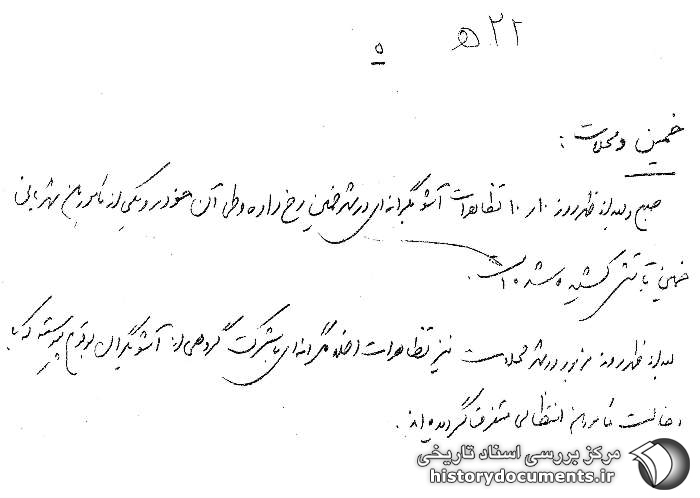 ۲۲ ه
۵
خمین و محلات :
صبح و بعد از ظهر روز ۱۰ر۱۰ تظاهرات آشوبگرانه‌ای در شهر خمین رخ داده و طی آن خودرو یکی از مامورین شهربانی
خمین بآتش کشیده شده است.
بعد از ظهر روز مزبور در شهر محلات نیز تظاهرات اخلالگرانه‌ای با شرکت گروهی از آشوبگران بوقوع پیوسته که با
دخالت مامورین انتظامی متفرق گردیده‌اند.
مرکز بررسی اسناد تاریخی
historydocuments.ir